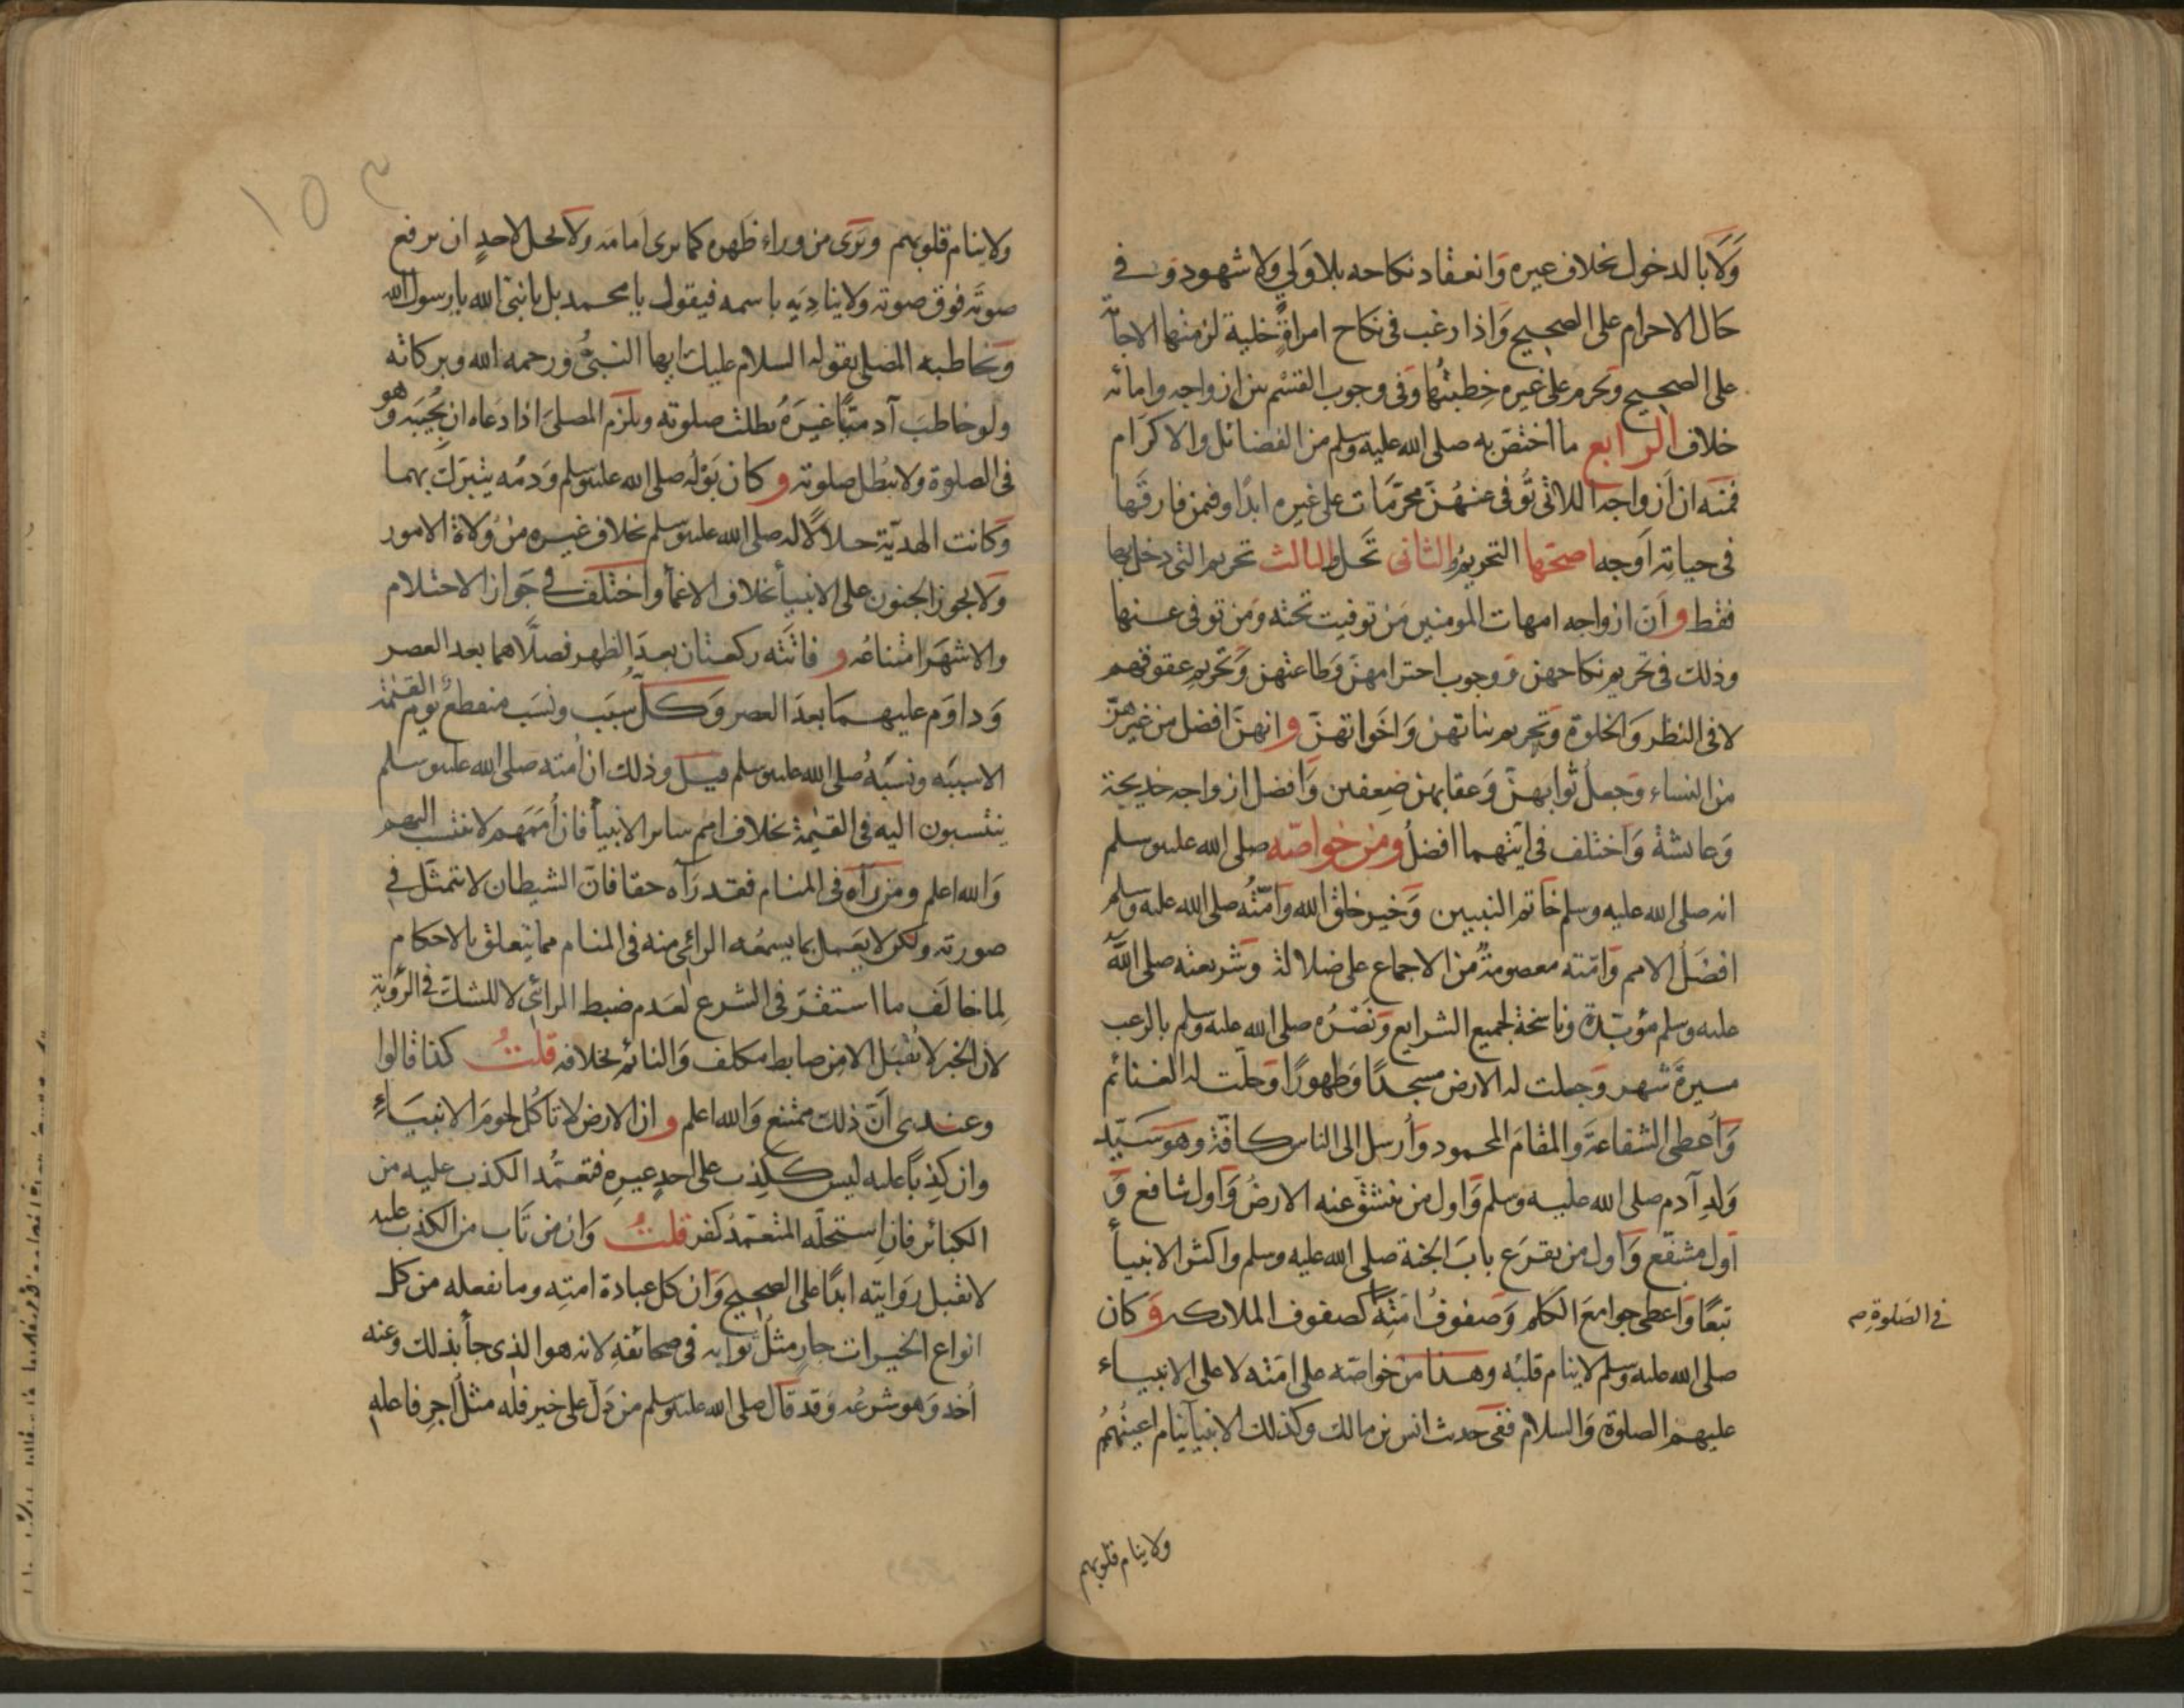 وَلَا بالدخول بخلاف غيره وَانعقاد نكاحه بلا وَلي ولا شهود وَفي
حَال الاحرام على الصحيح وَاذا رغب في نكاح امراةٍ خلية لزمها الاجابة
على الصحيح وَتحرم على غيره خِطبتُها وَفي وجوب القَسْم بين ازواجه وامائه
خلاف الرابع ما اختصّ به صلى الله عليه وسلم من الفضائل والاكرَام
فمنه ان اَزواجه اللاتي تُوُفي عنهُنّ محرّمَات على غيره ابدًا وفيمن فارقَها
في حياتِه اَوجه اصحّها التحريم والثاني تحَل والثالث تحريم التي دخل بها
فقط وَاَنّ ازواجه امهات المومنين مَن توفيت تحته وَمن توفي عنها
وذلك في تحريم نكاحهن وَوجوب احترامهنّ وَطاعتهن وَتحريم عقوقهم
لا في النظر وَالخلوة وَتحريم بناتهن وَاخَواتهنّ وانهنّ افضل من غيرهنّ
من النساء وَجعل ثوابهنّ وَعقابهن ضِعفين وَافضل ازواجه خديجة
وَعائشة وَاختلف في ايّتهما افضلُ ومن خواصّه صلى الله عليه وسلم
انه صلى الله عليه وسلم خَاتم النبيين وَخير خلق الله وَامّتُه صلى الله عليه وسلم
افضَلُ الامم وَامّته معصومةٌ من الاجماع على ضلالة وَشريعته صلى الله
عليه وسلم مؤبّدة وَناسخة لجميع الشرايع وَنَصْرُه صلى الله عليه وسلم بالرعب
مسيرةَ شهر وَجعلت له الارض مسجدًا وَطهورًا وَحلّت له الغنائم
وَاُعطى الشفاعةَ والمقامَ المحمود وَاُرسل الى الناس كافّة وهو سَيّد
وَلدِ آدم صلى الله عليه وسلم وَاول من تنشقّ عنه الارضُ وَاول شافع وَ
اَول مشفّع وَاول من يقرَع بابَ الجنة صلى الله عليه وسلم واكثر الانبيأ
تبعًا وَاعطى جوامعَ الكلم وَصفوفُ امّتِه كصفوف الملائكه وَكان
في الصَلوةِ
صلى الله عليه وسلم لا ينام قلبُه وهذا من خَواصّه على امّته لا على الانبياء
عليهم الصلوة وَالسلام ففي حَديث انس بن مالك وكذلك الانبيأ تنام اعينُهُم
ولا ينام قلوبهم
١٥٣
ولا ينام قلوبهم وَيَرى من وراء ظَهره كما يرى اَمامَه وَلا يحل لاحدٍ ان يرفع
صوتَه فوق صوته ولا يناديَه باسمه فيقول يا محمد بل يا نبي الله يا رسول الله
وَيخاطبه المصلي بقوله السلام عليك ايها النبيّ ورحمه الله وبركاته
ولو خاطبَ آدميًّا غيرَهُ بطلت صلوته ويلزم المصلىَ اذا دعَاه ان يُجيبَه وهو
في الصلوة ولا تبطل صلوته وكان بَوْلُه صلى الله عليه وسلم وَدمُه يتبرّك بهما
وَكانت الهديّة حلالًا له صلى الله عليه وسلم بخلاف غيره من وُلاة الامور
وَلا يجوز الجنون على الانبيأ بخلاف الاغمأ وَاختلف في جَواز الاحتلام
والاشهَر امتناعُه وفاتَته ركعتان بعدَ الظهر فصلّاهما بعد العصر
وَداوَم عليهمَا بعدَ العصر وَكلّ سَبَب ونَسَب منقطعٌ يوم القيٰمة
الا سببَه ونسَبُه صلى الله عليه وسلم قيل وذلك ان امته صلى الله عليه وسلم
ينتسبون اليه في القيٰمة بخلاف امم سائر الانبيأ فان اُمَمَهم لا تنتسب اليهم
وَالله اعلم ومن رَآه في المنام فقد رَآه حقا فانّ الشيطان لا يتمثّل في
صورته ولكن لا يعَمل بما يسمعُه الرائي منه في المنام مما يتعلق بالاحكام
لِما خالَف ما استقرّ في الشرع لعَدم ضبط الرائي لا للشك في الرؤية
لان الخبر لا يقبَل الا من ضابط مكلف وَالنائم بخلافه قلتُ كذا قالوا
وعندى اَنّ ذلك ممتنع وَالله اعلم وان الارض لا تاكُل لحومَ الانبيَاءِ
وان كَذِبًا عليه ليس ككذِب على احدٍ غيرِه فتعمُّد الكذب عليه من
الكبائر فانِ استحلّه المتعمّدُ كفر قلتُ وَان من تَاب من الكذب عليه
لا تقبل رِوَايته ابدًا على الصحيح وَان كل عبادة امتِه وما تفعله من كل
انواع الخيرات جارٍ مثلُ ثوابه في صحائفهِ لانه هو الذى جأ بذلك وعنه
اُخذ وَهو شرعُه وَقد قَال صلى الله عليه وسلم من دَلّ على خير فله مثلُ اجرِ فاعله